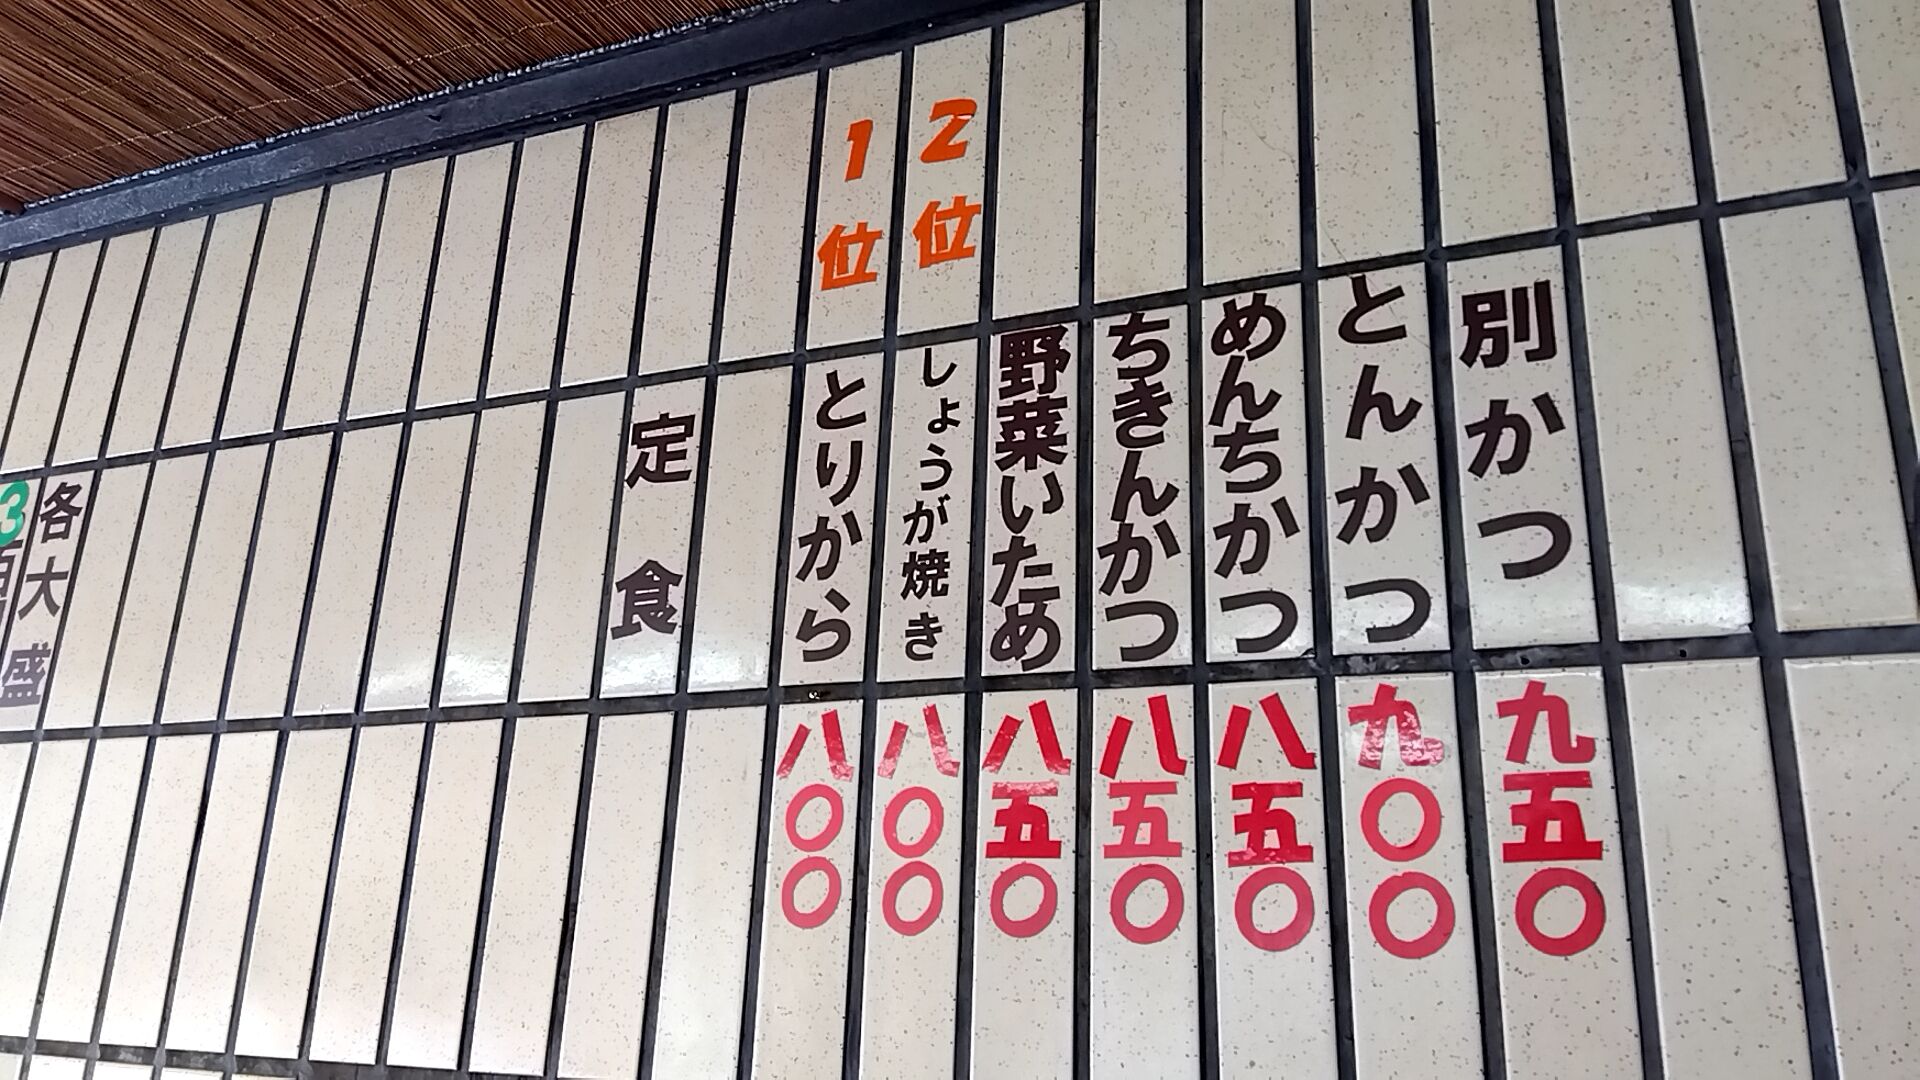 別かつ 九五〇
とんかつ 九〇〇
めんちかつ 八五〇
ちきんかつ 八五〇
野菜いため 八五〇
2位 しょうが焼き 八〇〇
1位 とりから 八〇〇
定食
各大盛
3